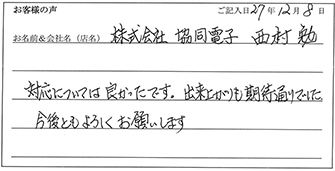 お客様の声 ご記入日27年12月8日
お名前&会社名（店名） 株式会社 協同電子 西村 勉
対応については良かったです。出来上がりも期待通りでした
今後ともよろしくお願いします